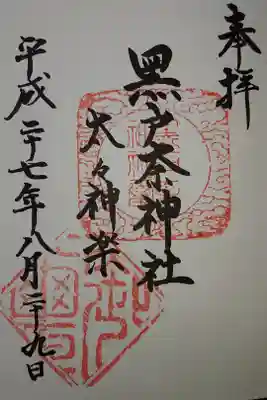 奉拝
黒戸奈神社
太々神楽
平成二十七年八月二十九日